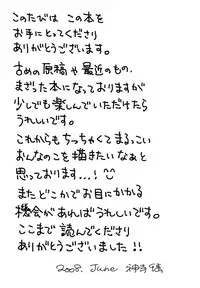 このたびは この本を
お手にとってくださり
ありがとうございます。
古めの原稿や最近のもの、
まざった本になっておりますが
少しでも楽しんでいただけたら
うれしいです。
これからもちっちゃくてまるっこい
おんなのこを描きたいなぁと
思っております…!
またどこかでお目にかかる
機会があればうれしいです。
ここまで 読んでくださり
ありがとうございました!!
2008. June